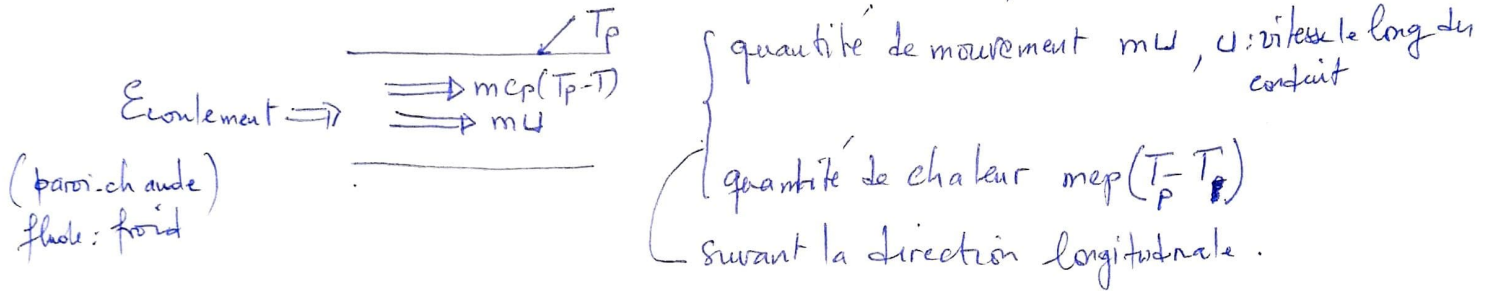 Tp
mcp(Tp-T)
Ecoulement ⇒
mU
(paroi-chaude)
fluide: froid
quantité de mouvement mU, U: vitesse le long du
conduit
quantité de chaleur mcp(Tp-T)
suivant la direction longitudinale.